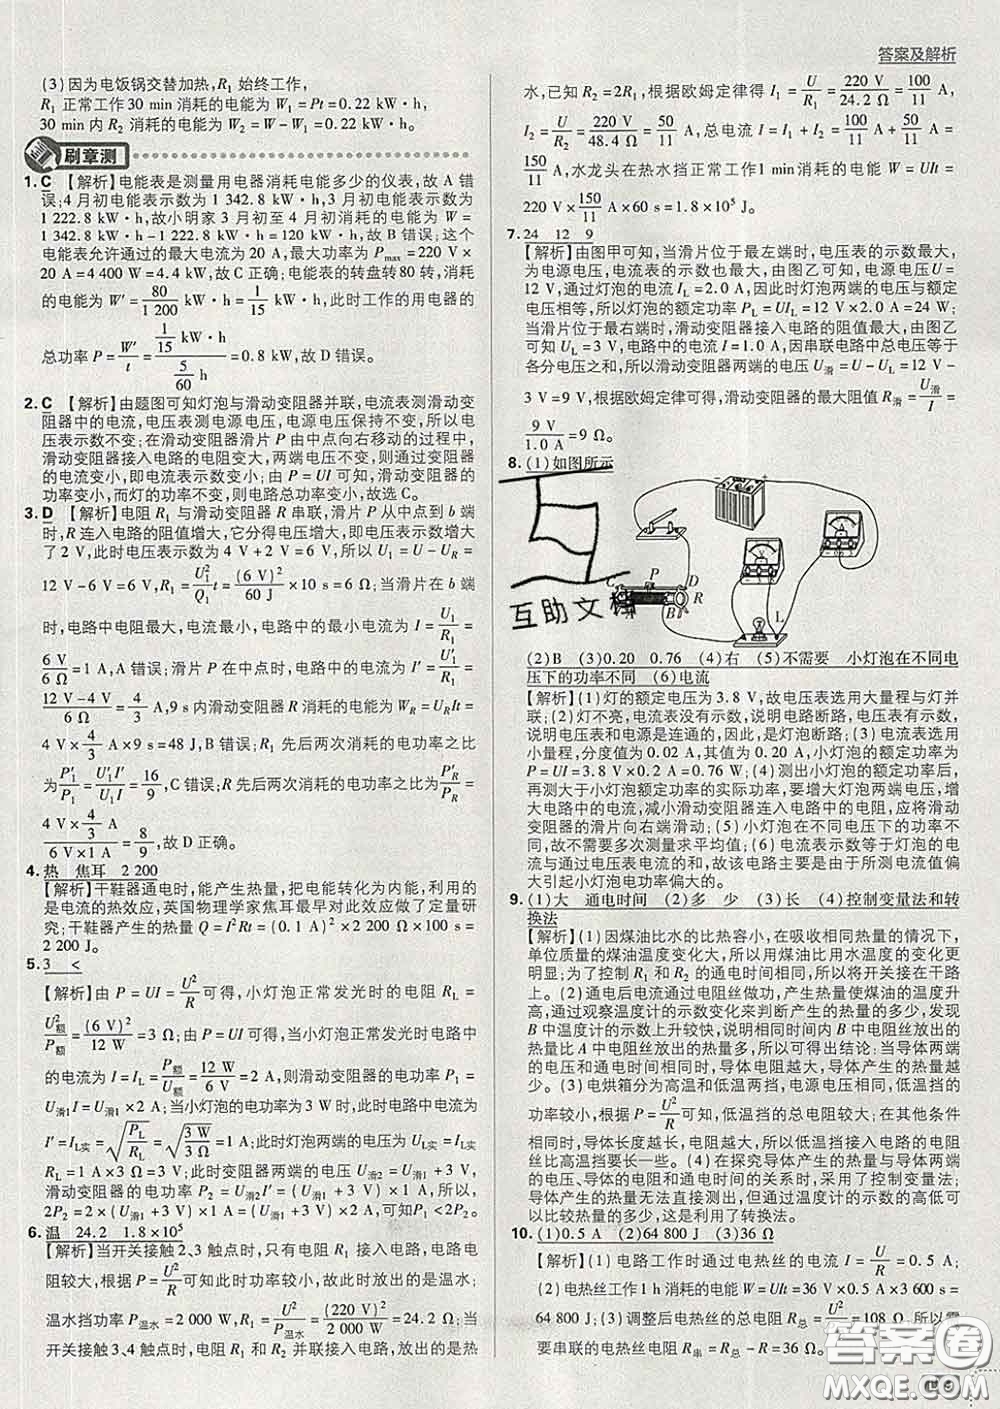 答案及解析
(3)因为电饭锅交替加热,R₁ 始终工作,
R₁ 正常工作30 min消耗的电能为 W₁=Pt=0.22 kW·h,
30 min内 R₂ 消耗的电能为 W₂=W-W₁=0.22 kW·h。
刷章测
1. C 【解析】电能表是测量用电器消耗电能多少的仪表,故 A 错
误;4月初电能表示数为 1 342.8 kW·h,3月初电能表示数为
1 222.8 kW·h,故小明家3月初至4月初消耗的电能为 W=
1 342.8 kW·h-1 222.8 kW·h=120 kW·h,故 B 错误;这个
电能表允许通过的最大电流为20 A,最大功率为 Pmax=220 V×
20 A=4 400 W=4.4 kW,故 C 正确;电能表的转盘转80转,消耗
的电能为 W′=80/1 200 kW·h=1/15 kW·h,此时工作的用电器的
总功率 P=W′/t=(1/15 kW·h)/(5/60 h)=0.8 kW,故 D 错误。
2. C 【解析】由题图可知灯泡与滑动变阻器并联,电流表测滑动变
阻器中的电流,电压表测电源电压,电源电压保持不变,所以电
压表示数不变;在滑动变阻器滑片 P 由中点向右移动的过程中,
滑动变阻器接入电路的电阻变大,两端电压不变,则通过变阻器
的电流变小,即电流表示数变小;由 P=UI 可知,滑动变阻器的
功率变小,而灯的功率不变,则电路总功率变小,故选 C。
3. D 【解析】电阻 R₁ 与滑动变阻器 R 串联,滑片 P 从中点到 b 端
时,R 连入电路的阻值增大,它分得电压增大,即电压表示数增大
了2 V,此时电压表示数为 4 V+2 V=6 V,所以 U₁=U-U_R=
12 V-6 V=6 V,R₁=U₁²/Q₁ t=(6 V)²/60 J×10 s=6 Ω;当滑片在 b 端
时,电路中电阻最大,电流最小,电路中的最小电流为 I=U₁/R₁=
6 V/6 Ω=1 A,A 错误;滑片 P 在中点时,电路中的电流为 I′=U₁′/R₁=
(12 V-4 V)/6 Ω=4/3 A,9 s内滑动变阻器 R 消耗的电能为 W_R=U_RIt=
4 V×4/3 A×9 s=48 J,B 错误;R₁ 先后两次消耗的电功率之比
为P₁′/P₁=U₁′I′/U₁I=16/9,C 错误;R 先后两次消耗的电功率之比为P_R′/P_R=
(4 V×4/3 A)/(6 V×1 A)=8/9,故 D 正确。
4. 热 焦耳 2 200
【解析】干鞋器通电时,能产生热量,把电能转化为内能,利用的
是电流的热效应,英国物理学家焦耳最早对此效应做了定量研
究;干鞋器产生的热量 Q=I²Rt=(0.1 A)²×440 Ω×500 s=
2 200 J。
5. 3 <
【解析】由 P=UI=U²/R可得,小灯泡正常发光时的电阻 R_L=
U额²/P额=(6 V)²/12 W=3 Ω;由 P=UI 可得,当小灯泡正常发光时电路中
的电流为 I=I_L=P额/U额=12 W/6 V=2 A,则滑动变阻器的电功率 P₁=
U滑1I=U滑1×2 A;当小灯泡的电功率为3 W时,此时电路中电流为
I′=I_L实=√(P_L/R_L)=√(3 W/3 Ω)=1 A;此时灯泡两端的电压为 U_L实=I_L实×
R_L=1 A×3 Ω=3 V;此时变阻器两端的电压 U滑2=U滑1+3 V,
滑动变阻器的电功率 P₂=U滑2I′=(U滑1+3 V)×1 A,所以,
2P₂=2×(U滑1+3 V)×1 A=(U滑1+3 V)×2 A,可知P₁<2P₂。
6. 温 24.2 1.8×10⁵
【解析】当开关接触2、3触点时,只有电阻 R₁ 接入电路,电路电
阻较大,根据 P=U²/R可知此时功率较小,所以此时的挡位是温水;
温水挡功率 P温水=2 000 W,R₁=U²/P温水=(220 V)²/2 000 W=24.2 Ω;当
开关接触3、4触点时,电阻 R₁ 和 R₂ 并联接入电路,流出的是热
水,已知 R₂=2R₁,根据欧姆定律得 I₁=U/R₁=220 V/24.2 Ω=100/11 A,
I₂=U/R₂=220 V/48.4 Ω=50/11 A,总电流 I=I₁+I₂=100/11 A+50/11 A=
150/11 A,水龙头在热水挡正常工作1 min消耗的电能 W=UIt=
220 V×150/11 A×60 s=1.8×10⁵ J。
7. 24 12 9
【解析】由图甲可知,当滑片位于最左端时,电压表的示数最大,
为电源电压,电流表的示数也最大,由图乙可知,电源电压U=
12 V,通过灯泡的电流 I_L=2.0 A,因此时灯泡的电压与额定
电压相等,所以灯泡的额定功率 P=UI_L=12 V×2.0 A=24 W;
当滑片位于最右端时,滑动变阻器接入电路的阻值最大,由图乙
可知 U_L=3 V,电路中的电流 I=1.0 A,因串联电路中总电压等于
各分电压之和,所以滑动变阻器两端的电压 U滑=U-U_L=12 V-
3 V=9 V,根据欧姆定律可得,滑动变阻器的最大阻值 R滑=U滑/I=
9 V/1.0 A=9 Ω。
8. (1)如图所示
C P D
A B R
V A
L
互助文档
(2)B (3)0.20 0.76 (4)右 (5)不需要 小灯泡在不同电
压下的功率不同 (6)电流
【解析】(1)灯的额定电压为3.8 V,故电压表选用大量程与灯并
联;(2)灯不亮,电流表没有示数,说明电路断路,电压表有示数,
说明电压表和电源是连通的,因此,是灯泡断路;(3)电流表选用
小量程,分度值为0.02 A,其值为0.20 A,小灯泡的额定功率为
P=UI=3.8 V×0.2 A=0.76 W;(4)测出小灯泡的额定功率后,
再测大于小灯泡额定功率的实际功率,要增大灯泡两端电压,增
大电路中的电流,减小滑动变阻器连入电路中的电阻,应将滑动
变阻器的滑片向右端滑动;(5)小灯泡在不同电压下的功率不
同,故不需要多次测量求平均值;(6)电流表示数等于灯泡的电
流与通过电压表电流的和,故该电路主要是由于所测电流值偏
大引起小灯泡电功率偏大的。
9. (1)大 通电时间 (2)多 少 (3)长 (4)控制变量法和转
换法
【解析】(1)因煤油比水的比热容小,在吸收相同热量的情况下,
单位质量的煤油温度变化大,所以用煤油比用水温度的变化更
明显;为了控制 R₁ 和 R₂ 的通电时间相同,所以将开关接在干路
上。(2)通电后电流通过电阻丝做功,产生热量使煤油的温度升
高,通过观察温度计的示数变化来判断产生的热量的多少,发现
B 中温度计的示数上升较快,说明相同时间内 B 中电阻丝放出的
热量比 A 中电阻丝放出的热量多,所以可得出结论:当导体两端
的电压和通电时间相同时,导体电阻越大,电流产生的热量越
少。(3)电烘箱分为高温和低温两挡,电源电压相同,低温挡的
功率较小,根据 P=U²/R可知,低温挡的总电阻较大;在其他条件
相同时,导体长度越长,电阻越大,所以低温挡接入电路的电阻
丝比高温挡要长一些。(4)在探究导体产生的热量与导体两端
的电压、导体的电阻和通电时间的关系时,采用了控制变量法;
导体产生的热量无法直接测出,但通过温度计的示数的高低可
以比较热量的多少,这是利用了转换法。
10. (1)0.5 A (2)64 800 J (3)36 Ω
【解析】(1)电路工作时通过电热丝的电流 I=U/R=0.5 A;
(2)电热丝工作1 h消耗的电能 W=UIt=36 V×0.5 A×3 600 s=
64 800 J;(3)调整后电热丝的总电阻 R总=U²/P=108 Ω,所以需
要串联的电热丝电阻 R串=R总-R=36 Ω。
答案圈
MXQE.COM